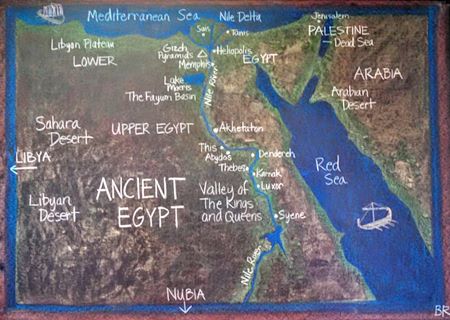 Mediterranean Sea
Nile Delta
Jerusalem
Sais
Tanis
PALESTINE
Dead Sea
Libyan Plateau
Gizeh
Pyramids
Heliopolis
LOWER
EGYPT
Memphis
ARABIA
Lake
Moeris
Nile River
Arabian
Desert
The Fayum Basin
Sahara
Desert
UPPER EGYPT
Akhetaton
This
Abydos
Dendereh
LIBYA
Thebes
Karnak
Red
Sea
Libyan
Desert
ANCIENT
EGYPT
Valley of
The Kings
and Queens
Luxor
Syene
Nile River
NUBIA
BR